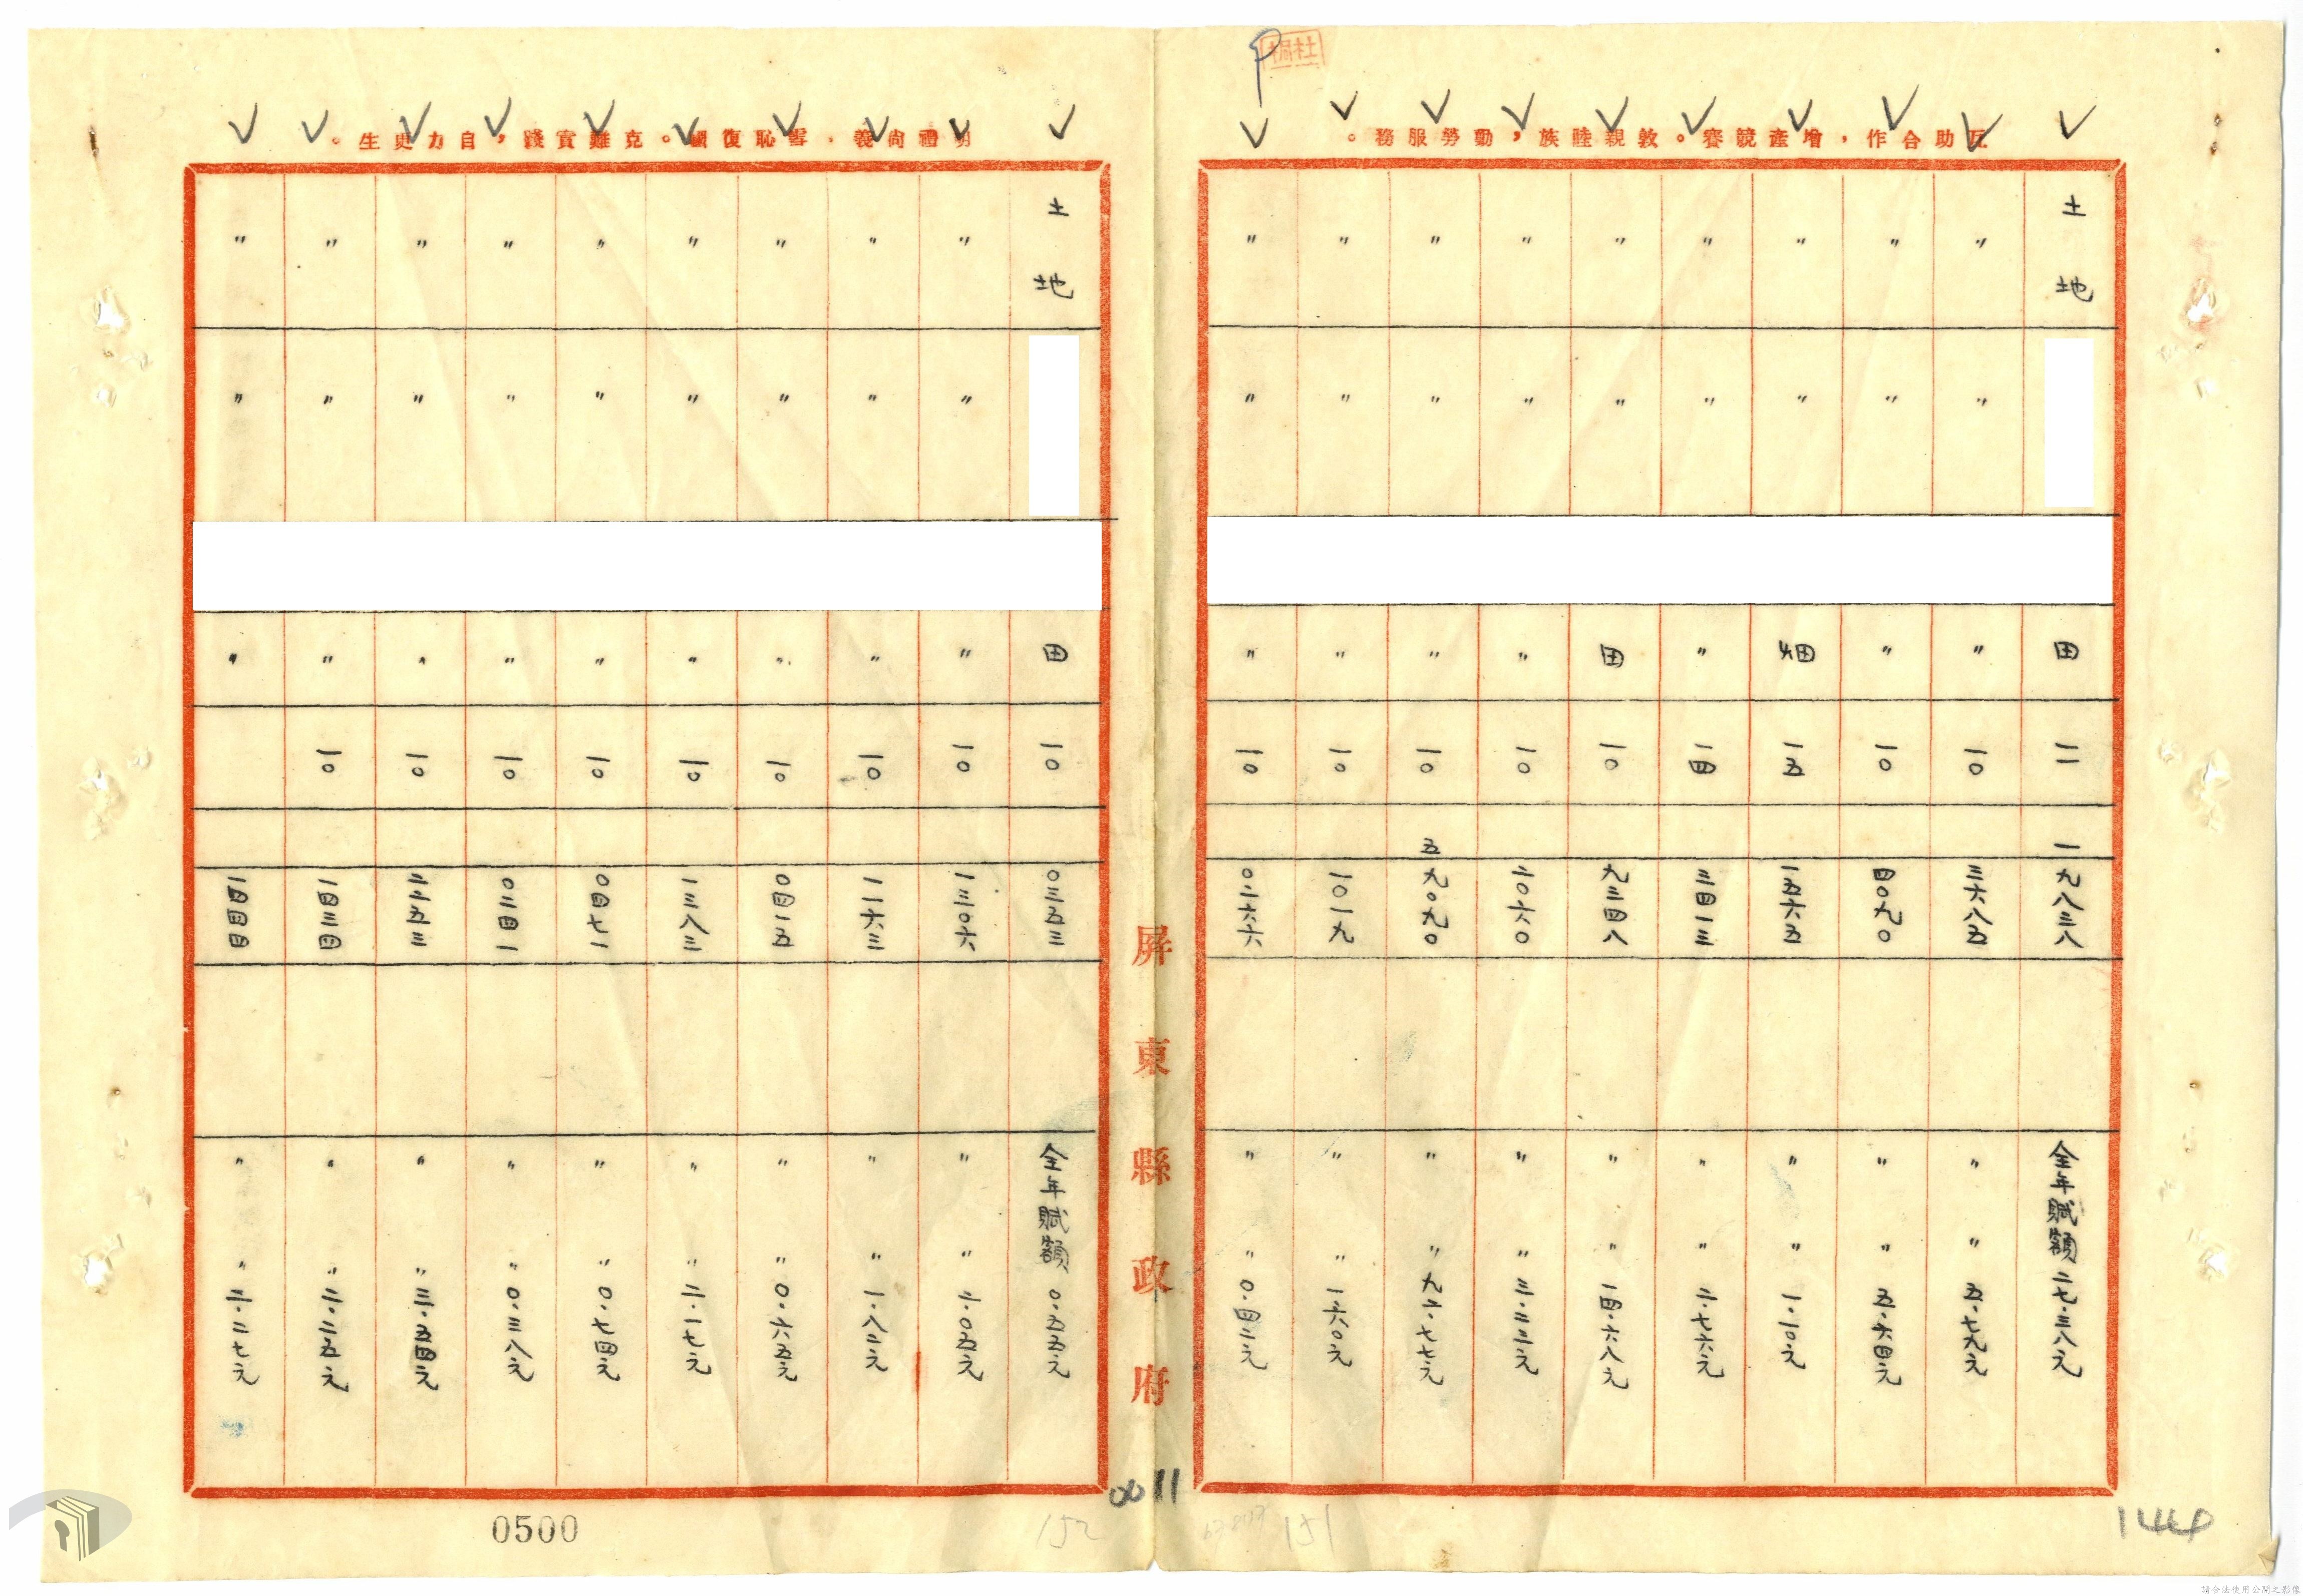 杜桐
互助合作，增產競賽。敦親睦族，勤勞服務。
土地 田 一一 一九八三八 全年賦額二七.三八元
〃 〃 〃 一〇 三六八五 〃 〃 五.七九元
〃 〃 〃 一〇 四〇九〇 〃 〃 五.六四元
〃 〃 畑 一五 一五六五 〃 〃 一.一〇元
〃 〃 〃 一四 三四一三 〃 〃 二.七六元
〃 〃 田 一〇 九三四八 〃 〃 一四.六八元
〃 〃 〃 一〇 二〇六〇 〃 〃 三.二三元
〃 〃 〃 一〇 五九〇九〇 〃 〃 九二.七七元
〃 〃 〃 一〇 一〇一九 〃 〃 一.六〇元
〃 〃 〃 一〇 〇二六六 〃 〃 〇.四二元
屏東縣政府
明禮尚義，雪恥復國。克難實踐，自力更生。
土地 田 一〇 〇三五三 全年賦額 〇.五五元
〃 〃 〃 一〇 一三〇六 〃 〃 二.〇五元
〃 〃 〃 一〇 一一六三 〃 〃 一.八二元
〃 〃 〃 一〇 〇四一五 〃 〃 〇.六五元
〃 〃 〃 一〇 一三八三 〃 〃 二.一七元
〃 〃 〃 一〇 〇四七一 〃 〃 〇.七四元
〃 〃 〃 一〇 〇二四一 〃 〃 〇.三八元
〃 〃 〃 一〇 二二五三 〃 〃 三.五四元
〃 〃 〃 一〇 一四三四 〃 〃 二.二五元
〃 〃 〃 一四四四 〃 〃 二.二七元
0011
144
151
152
0500
請合法使用公開之影像